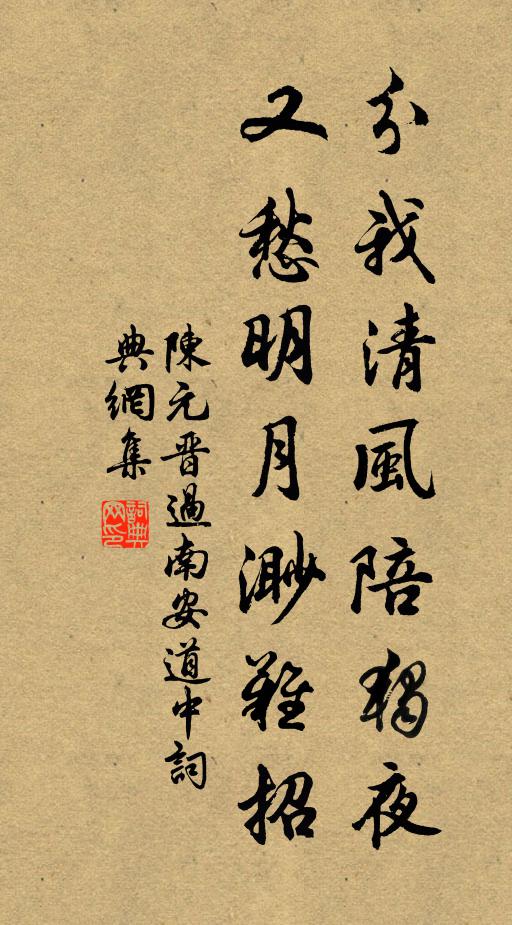 分我清風陪獨夜
又愁明月渺難招
陳元晋過南安道中詞
典網集
詞典網印